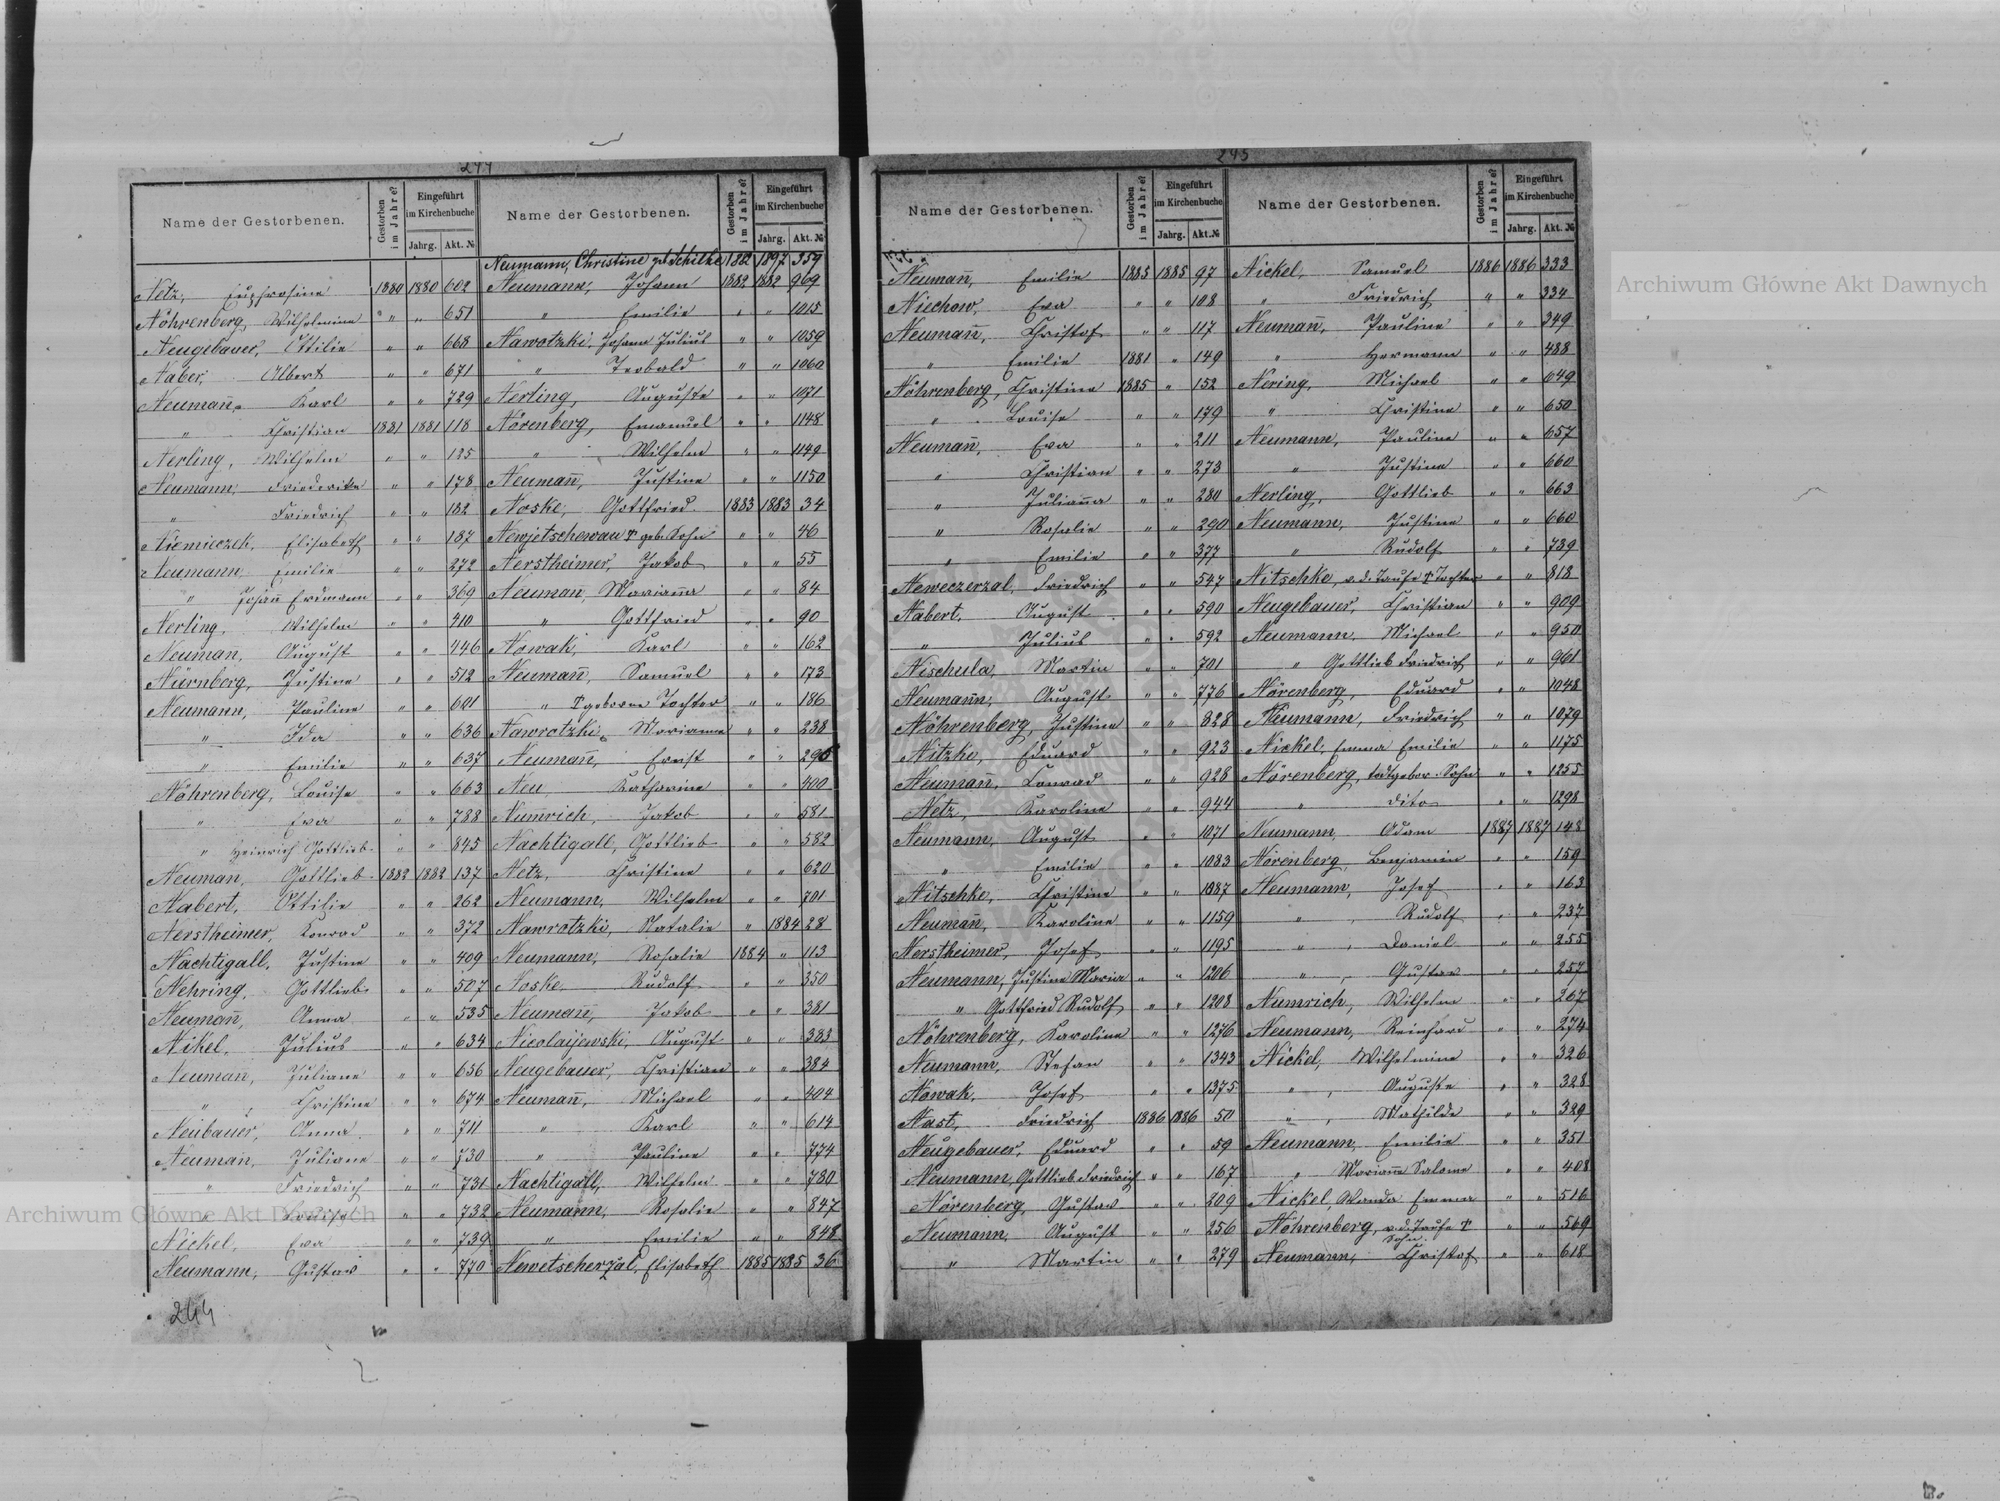 244
Name der Gestorbenen.
Gestorben im Jahre?
Eingeführt im Kirchenbuche
Jahrg. Akt. №
Netz, Euphrosine 1880 1880 602
Nöhrenberg, Wilhelmine " " 651
Neugebauer, Ottilie " " 668
Naber, Albert " " 671
Neumañ, Karl " " 729
" Christian 1881 1881 118
Nerling, Wilhelm " " 125
Neumann, Friederike " " 178
" Friedrich " " 182
Niemieczek, Elisabeth " " 187
Neumann, Emilie " " 272
" Johañ Erdmann " " 369
Nerling, Wilhelm " " 410
Neuman, August " " 446
Nürnberg, Justine " " 512
Neumann, Pauline " " 601
" Ida " " 636
" Emilie " " 637
Nöhrenberg, Louise " " 663
" Eva " " 788
" Heinrich Gottlieb " " 845
Neuman, Gottlieb 1882 1882 137
Nabert, Ottilie " " 262
Nerstheimer, Konrad " " 372
Nachtigall, Justine " " 409
Nehring, Gottlieb " " 507
Neumañ, Anna " " 535
Nikel, Julius " " 634
Neuman, Juliane " " 656
" Christine " " 674
Neubauer, Anna " " 711
Neuman, Juliane " " 730
" Friedrich " " 731
" Louise " " 732
Nickel, Eva " " 739
Neumann, Gustav " " 770
244
Name der Gestorbenen.
Gestorben im Jahre?
Eingeführt im Kirchenbuche
Jahrg. Akt. №
Neumann, Christine geb Schilke 1882 1897 359
Neumann, Johann 1882 1882 969
" Emilie " " 1015
Nawotzki, Johann Julius " " 1059
" Teobald " " 1060
Nerling, Auguste " " 1071
Nörenberg, Emanuel " " 1148
" Wilhelm " " 1149
Neumañ, Justine " " 1150
Noske, Gottfried 1883 1883 34
Newjetschewau geb. Sohn " " 46
Nerstheimer, Jakob " " 55
Neuman, Mariañа " " 84
" Gottfried " " 90
Nowak, Karl " " 162
Neumañ, Samuel " " 173
" geborene Tochter " " 186
Nawrotzki, Marianne " " 238
Neumañ, Ernst " " 296
Neu, Katharine " " 400
Num̄rich, Jakob " " 581
Nachtigall, Gottlieb " " 582
Netz, Christine " " 620
Neumann, Wilhelm " " 701
Nawrotzki, Natalie " 1884 28
Neumann, Rosalie 1884 " 113
Noske, Rudolf " " 350
Neumañ, Jakob " " 381
Nicolaijewski, August " " 383
Neugebauer, Christian " " 384
Neumañ, Michael " " 404
" Karl " " 614
" Pauline " " 774
Nachtigall, Wilhelm " " 780
Neumann, Rosalie " " 847
" Emilie " " 848
Newetscherzal, Elisabeth 1885 1885 36
245
Name der Gestorbenen.
Gestorben im Jahre?
Eingeführt im Kirchenbuche
Jahrg. Akt. №
Neumañ, Emilie 1885 1885 97
Niechow, Eva " " 108
Neumañ, Christof " " 117
" Emilie 1881 " 149
Nöhrenberg, Christine 1885 " 152
" Louise " " 179
Neumañ, Eva " " 211
" Christian " " 273
" Juliañа " " 280
" Rosalie " " 290
" Emilie " " 377
Neweczerzal, Friedrich " " 547
Nabert, August " " 590
" Julius " " 592
Nischula, Martin " " 701
Neumann, August " " 776
Nöhrenberg, Justine " " 828
Nitzke, Eduard " " 923
Neumañ, Konrad " " 928
Netz, Karoline " " 944
Neumann, August " " 1071
" Emilie " " 1083
Nitschke, Christine " " 1087
Neumañ, Karoline " " 1159
Nerstheimer, Josef " " 1195
Neumann, Justine Maria " " 1206
" Gottfried Rudolf " " 1208
Nöhrenberg, Karoline " " 1276
Neumann, Stefan " " 1343
Nowak, Josef " " 1375
Nast, Friedrich 1886 1886 50
Neugebauer, Eduard " " 59
Neumann, Gottlieb Friedrich " " 167
Nörenberg, Gustav " " 209
Neumann, August " " 256
" Martin " " 279
Name der Gestorbenen.
Gestorben im Jahre?
Eingeführt im Kirchenbuche
Jahrg. Akt. №
Nickel, Samuel 1886 1886 333
" Friedrich " " 334
Neumañ, Pauline " " 349
" Hermann " " 488
Nering, Michael " " 649
" Christine " " 650
Neumann, Pauline " " 657
" Justine " " 660
Nerling, Gottlieb " " 663
Neumann, Justine " " 660
" Rudolf " " 739
Nitschke, v. d. Taufe † Tochter " " 818
Neugebauer, Christian " " 909
Neumann, Michael " " 950
" Gottlieb Friedrich " " 961
Nörenberg, Eduard " " 1048
Neumann, Friedrich " " 1079
Nickel, Emma Emilie " " 1175
Nörenberg, todtgebor. Sohn " " 1255
" dito " " 1298
Neumann, Adam 1887 1887 148
Nörenberg, Benjamin " " 159
Neumann, Josef " " 163
" Rudolf " " 237
" Daniel " " 255
" Gustav " " 257
Numrich, Wilhelm " " 267
Neumann, Reinhard " " 274
Nickel, Wilhelmine " " 326
" Auguste " " 328
" Mathilde " " 329
Neumann, Emilie " " 351
" Mariañe Salome " " 408
Nickel, Wanda Emma " " 516
Nöhrenberg, v. d. Taufe † Sohn " " 569
Neumann, Christof " " 618
Archiwum Główne Akt Dawnych
Archiwum Główne Akt Dawnych